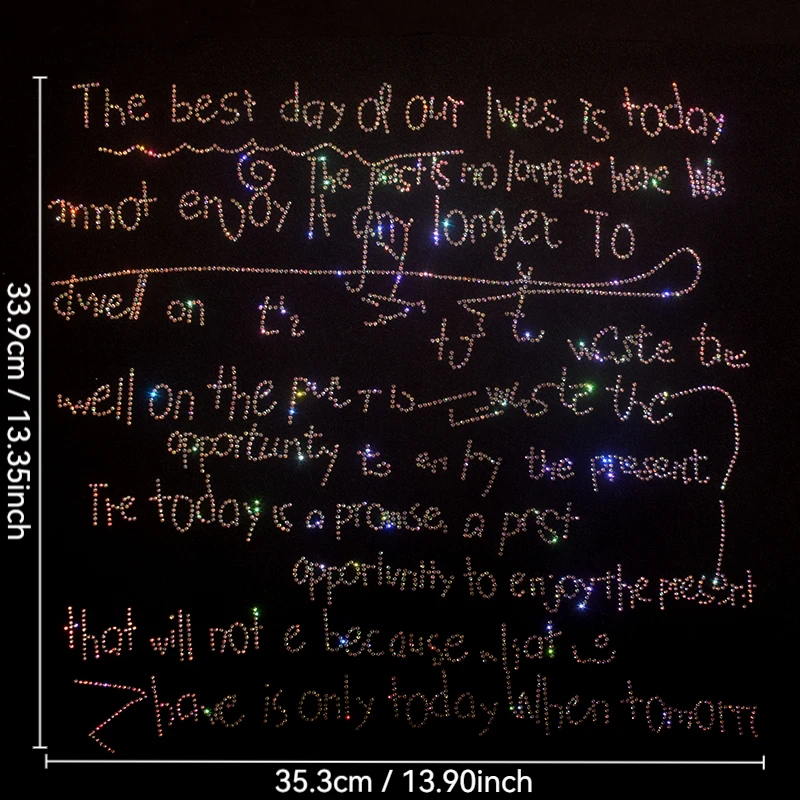 The best day of our lives is today
The past is no longer here We
annot enjoy It any longer To
dwell on
waste the
well on the waste the
opportunity to the present
The today is a promise, a
opportunity to enjoy the present
that will not e because what is
have is only today When tomorrr
33.9cm / 13.35inch
35.3cm / 13.90inch